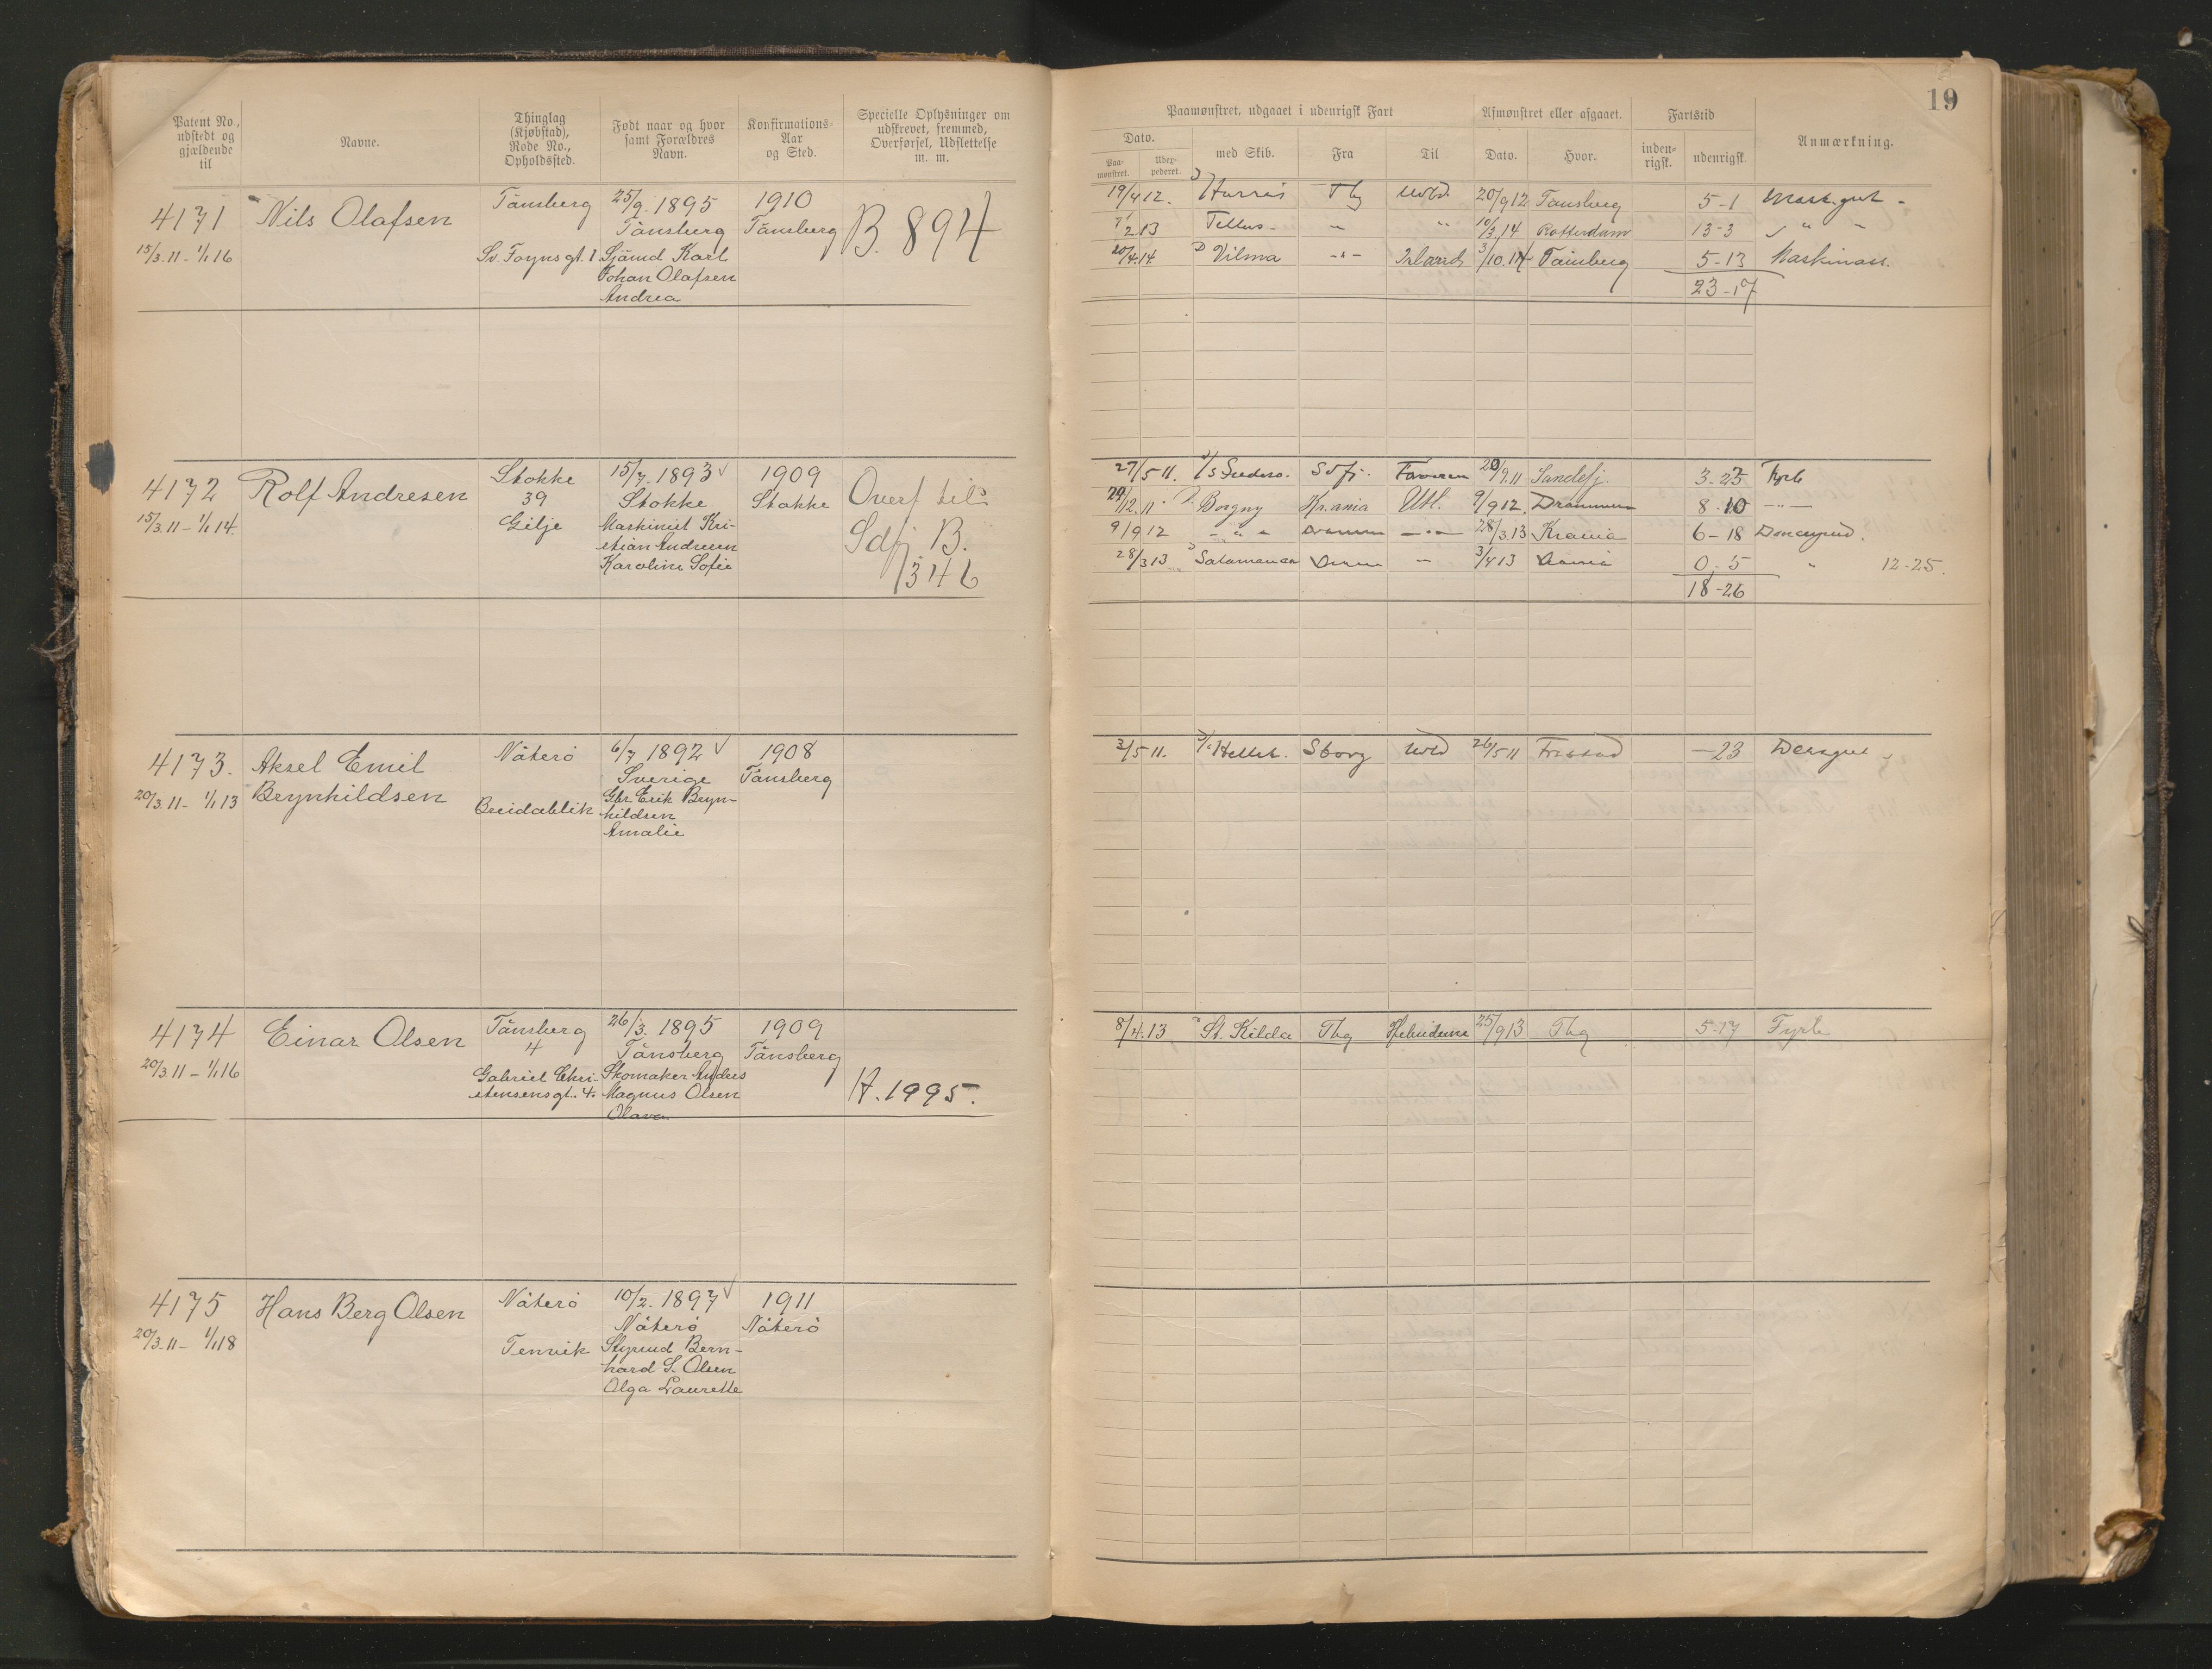 19
Patent No., udstedt og gjældende til
Navne.
Thinglag (Kjøbstad), Rode No., Opholdssted.
Født naar og hvor samt Forældres Navn.
Konfirmations-Aar og Sted.
Specielle Oplysninger om udskrevet, fremmed, Overførsel, Udslettelse m. m.
Paamønstret, udgaaet i udenrigsk Fart
Afmønstret eller afgaaet.
Fartstid
Anmærkning.
Dato.
Paa-mønstret.
Udex-pederet.
med Skib.
Fra
Til
Dato.
Hvor.
inden-rigsk.
udenrigsk.
4171
15/3.11 - 1/1 16
Nils Olafsen
Tønsberg
Sv. Foynsgt. 1
25/9. 1895
Tønsberg
Sjømd Karl
Johan Olafsen
Andrea
1910
Tønsberg
B. 894
19/4 12. Tbg Udl. 20/9 12 Tønsberg 5-1
2.13 Tellus - " " 10/3.14 Rotterdam 13-3 " "
20/4.14. D Vilma - " - Island 3/10.14 Tønsberg 5-13 Maskinass.
23-17
4172
15/3.11 - 1/1 14.
Rolf Andresen
Stokke
39
Gilje
15/7. 1893 √
Stokke
Maskinist Kri-
stian Andresen
Karoline Sofie
1909
Stokke
Overf til
Sdfj. B.
346
27/5 11. Sdfj. 20/9.11 Sandefj. 3-23 Fyrb
12.11 Borgny Kr.ania Utl. 9/9 12. Drammen 8-10 - " -
9/9 12 - " - Drammen - " - 28/3.13 Krania 6-18 Donkeymd.
28/3 13 Salamanca - 3/4 13 0-5 " 12-25.
18-26
4173.
20/3.11 - 1/1 13
Aksel Emil
Brynhildsen
Nøterø
Breidablik
6/7 1892 √
Sverige
Gbr. Erik Bryn-
hildsen
Amalie
1908
Tønsberg
3/5 11. Sborg Utld 26/5 11 Frstad -23
4174
20/3.11 - 1/1 16
Einar Olsen
Tønsberg
4
Gabriel Chri-
stensensgt. 4.
26/3. 1895
Tønsberg
Skomaker Anders
Magnus Olsen
Olava
1909
Tønsberg
A. 1995.
8/4.13 St. Kilda Tbg Hebriderne 25/9 13 Tbg 5-17 Fyrb
4175
20/3.11 - 1/1 18
Hans Berg Olsen
Nøterø
Tenvik
10/2. 1897 √
Nøterø
Styrmd Bern-
hard S. Olsen
Olga Laurette
1911
Nøterø